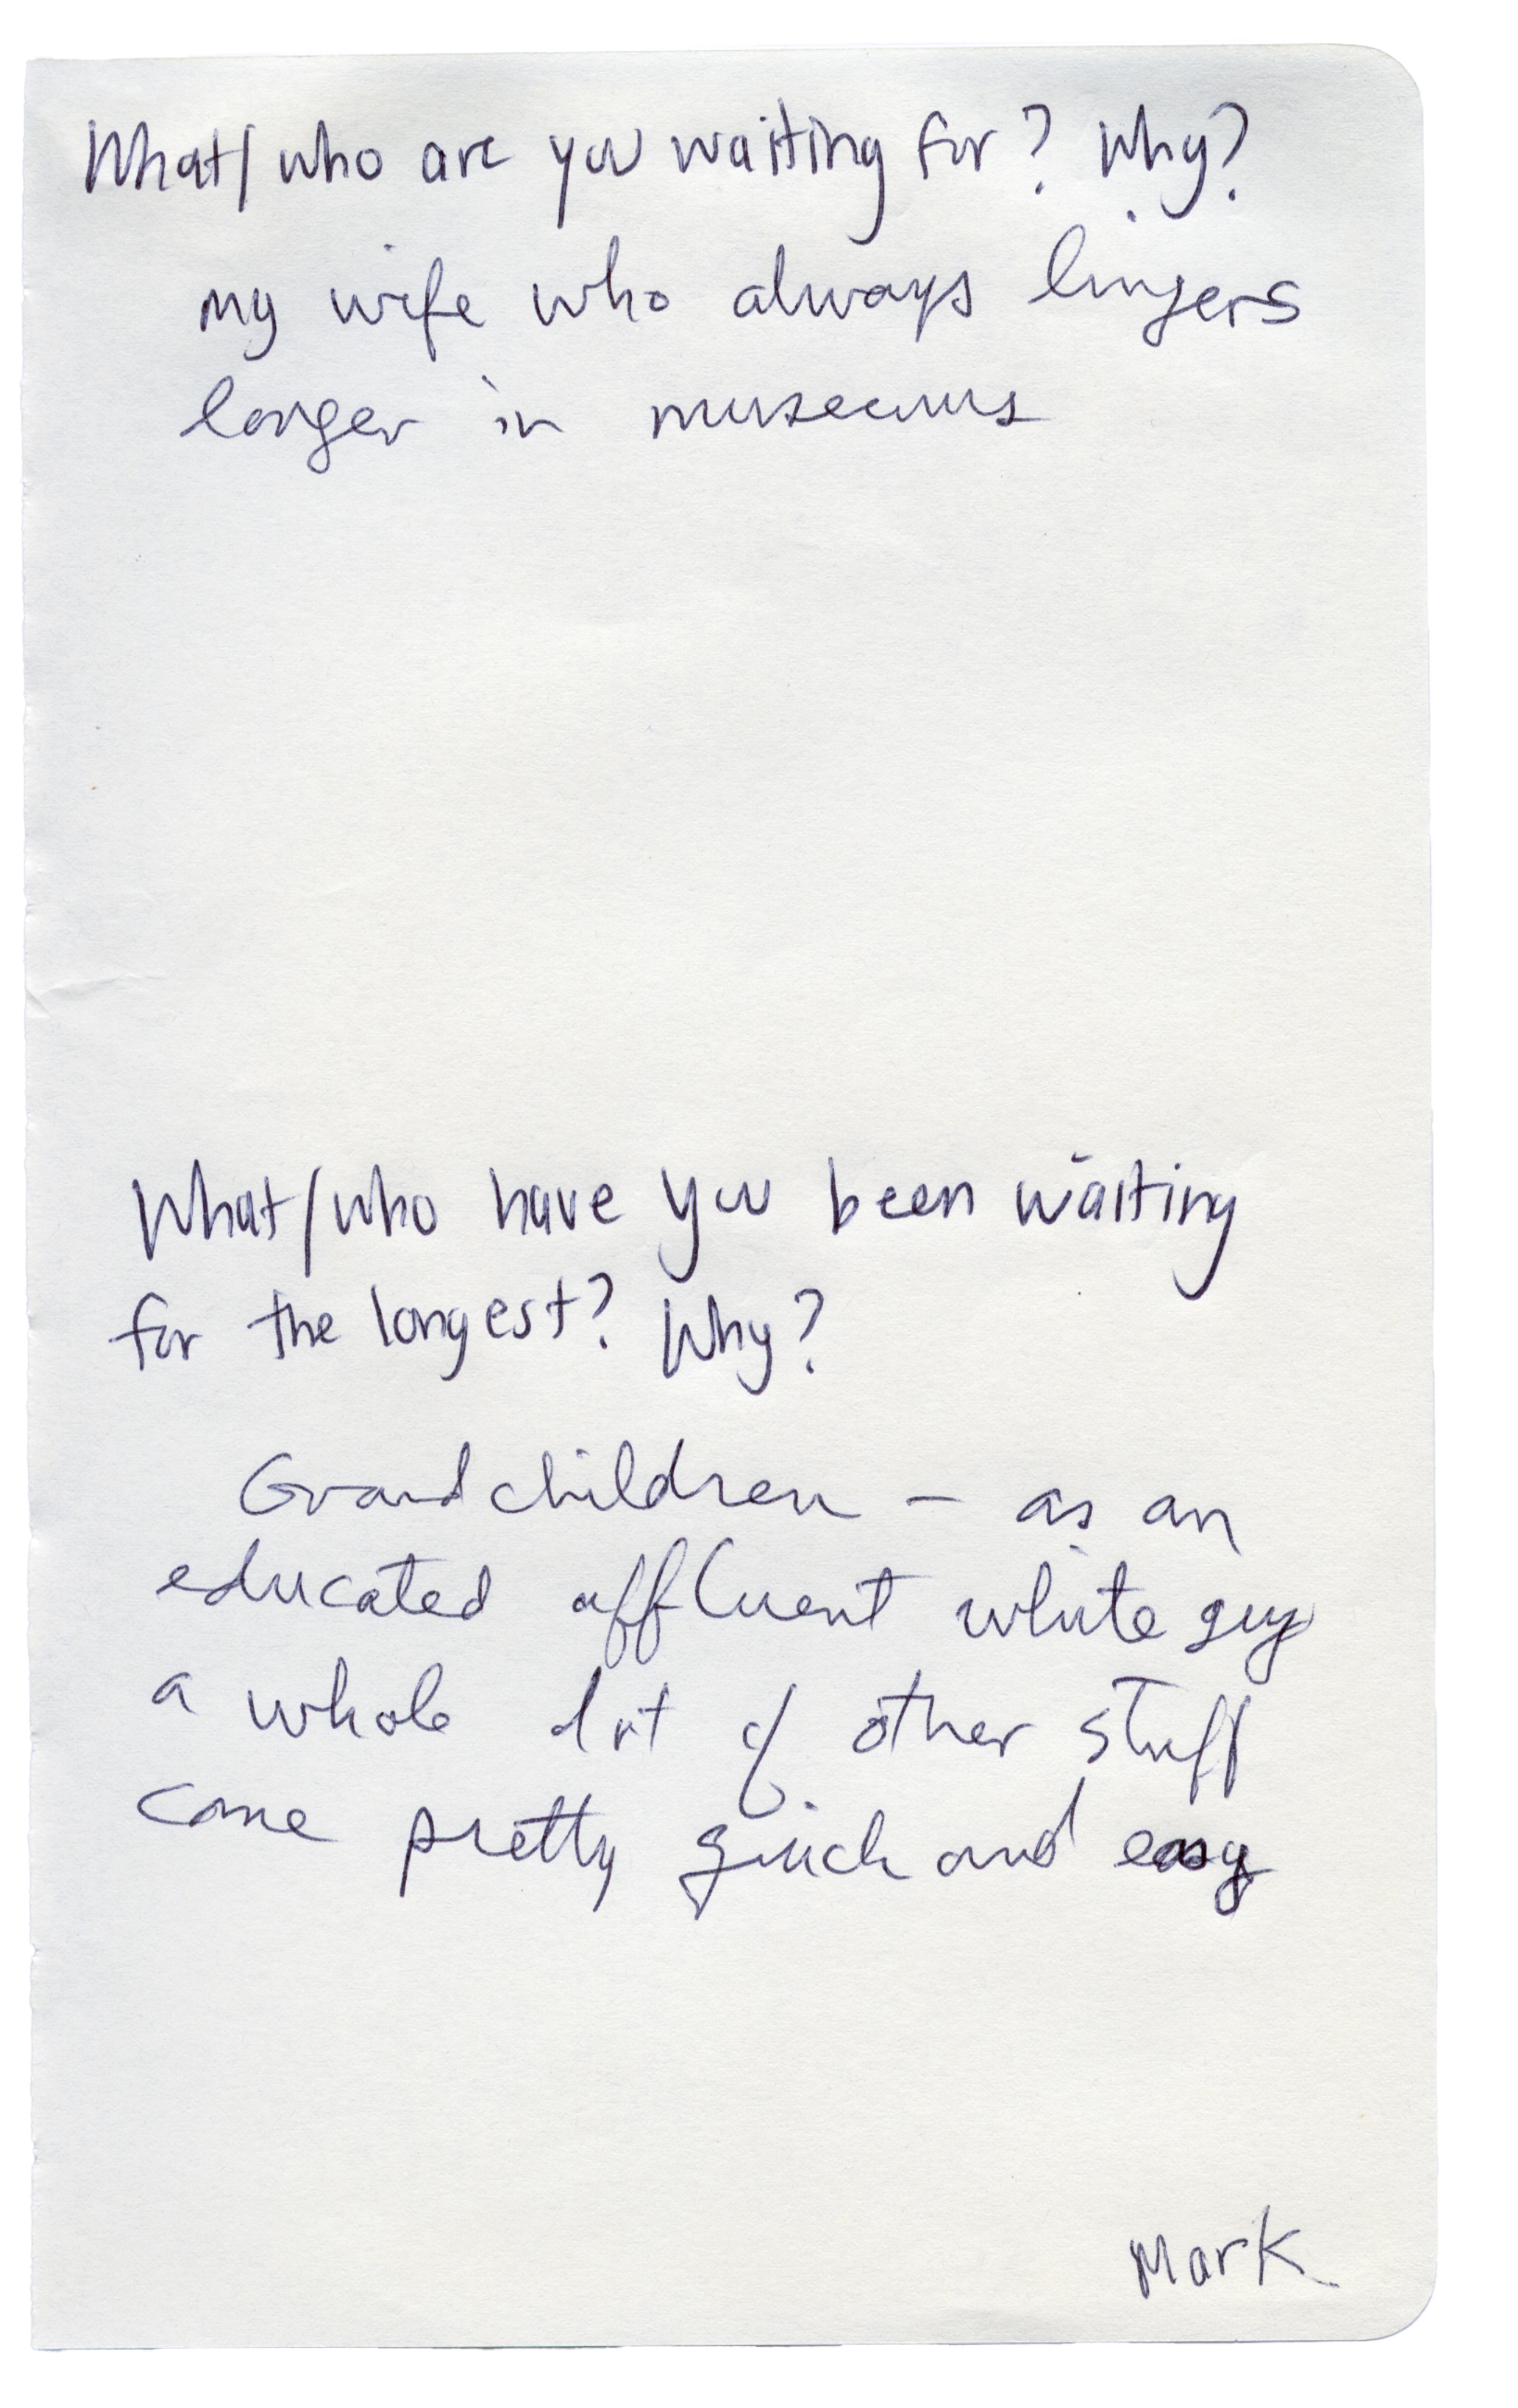 What/who are you waiting for? Why?
my wife who always lingers
longer in museums
What/who have you been waiting
for the longest? Why?
Grandchildren – as an
educated affluent white guy
a whole lot of other stuff
come pretty quick and easy
Mark